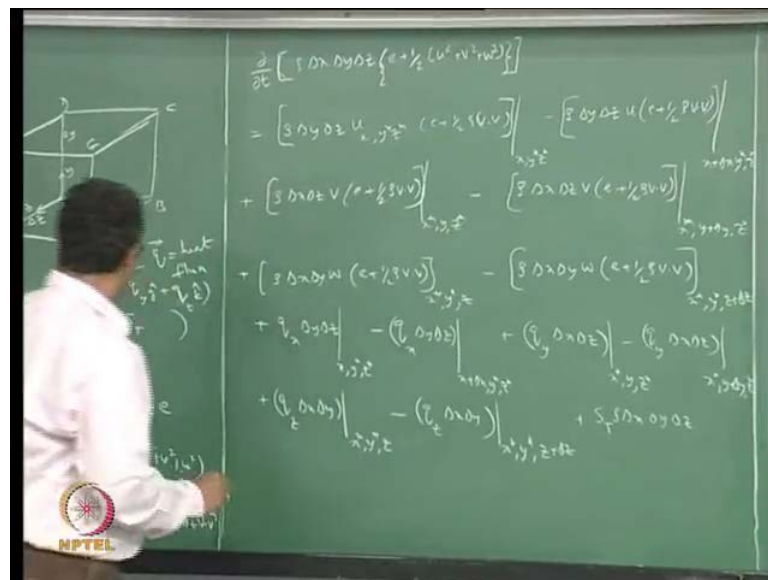 D C
G
Δy
y
B
Δz
q⃗ = heat
flux
q_y ĵ + q_z k̂)
)
e
∂/∂t [ρ Δx Δy Δz {e + 1/2 (u² + v² + w²)}]
= [ρ Δy Δz u_{x, y*, z*} (e + 1/2 ρ v·v)]|_{x, y*, z*} − [ρ Δy Δz u (e + 1/2 ρ v·v)]|_{x+Δx, y*, z*}
+ [ρ Δx Δz v (e + 1/2 ρ v·v)]|_{x*, y, z*} − [ρ Δx Δz v (e + 1/2 ρ v·v)]|_{x*, y+Δy, z*}
+ [ρ Δx Δy w (e + 1/2 ρ v·v)]_{x*, y*, z} − [ρ Δx Δy w (e + 1/2 ρ v·v)]_{x*, y*, z+Δz}
+ q_x Δy Δz|_{x, y*, z*} − (q_x Δy Δz)|_{x+Δx, y*, z*} + (q_y Δx Δz)|_{x*, y, z} − (q_y Δx Δz)|_{x*, y+Δy, z}
+ (q_z Δx Δy)|_{x*, y*, z} − (q_z Δx Δy)|_{x*, y*, z+Δz} + S_T ρ Δx Δy Δz
NPTEL